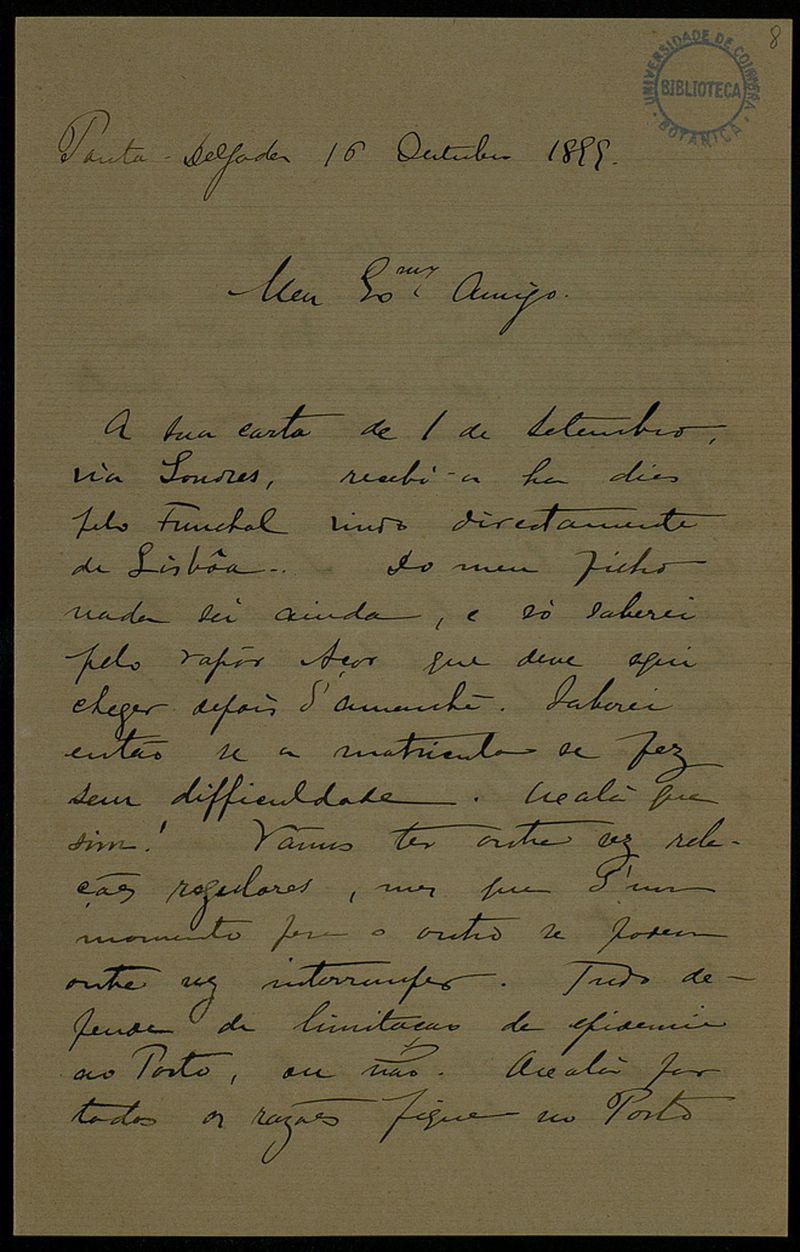 8
UNIVERSIDADE DE COIMBRA
BIBLIOTECA
BOTANICA
Ponta-Delgada 16 Outubro 1899.
Meu Exmo Amigo.
A sua carta de 1 de Setembro,
via Londres, recebi-a ha dias
pelo Funchal vindo directamente
de Lisbôa.. Do meu filho
nada sei ainda, e só saberei
pelo vapôr Açor que deve aqui
chegar depois d'amanhã. Saberei
então se a matricula se fez
sem difficuldade. Oxalá que
sim! Vamos ter outra vez rela-
ções regulares, mas que d'um
momento para o outro se podem
outra vez interromper. Tudo de-
pende da limitação da epidemia
ao Porto, ou não. Oxalá por
todas as razões fique no Porto